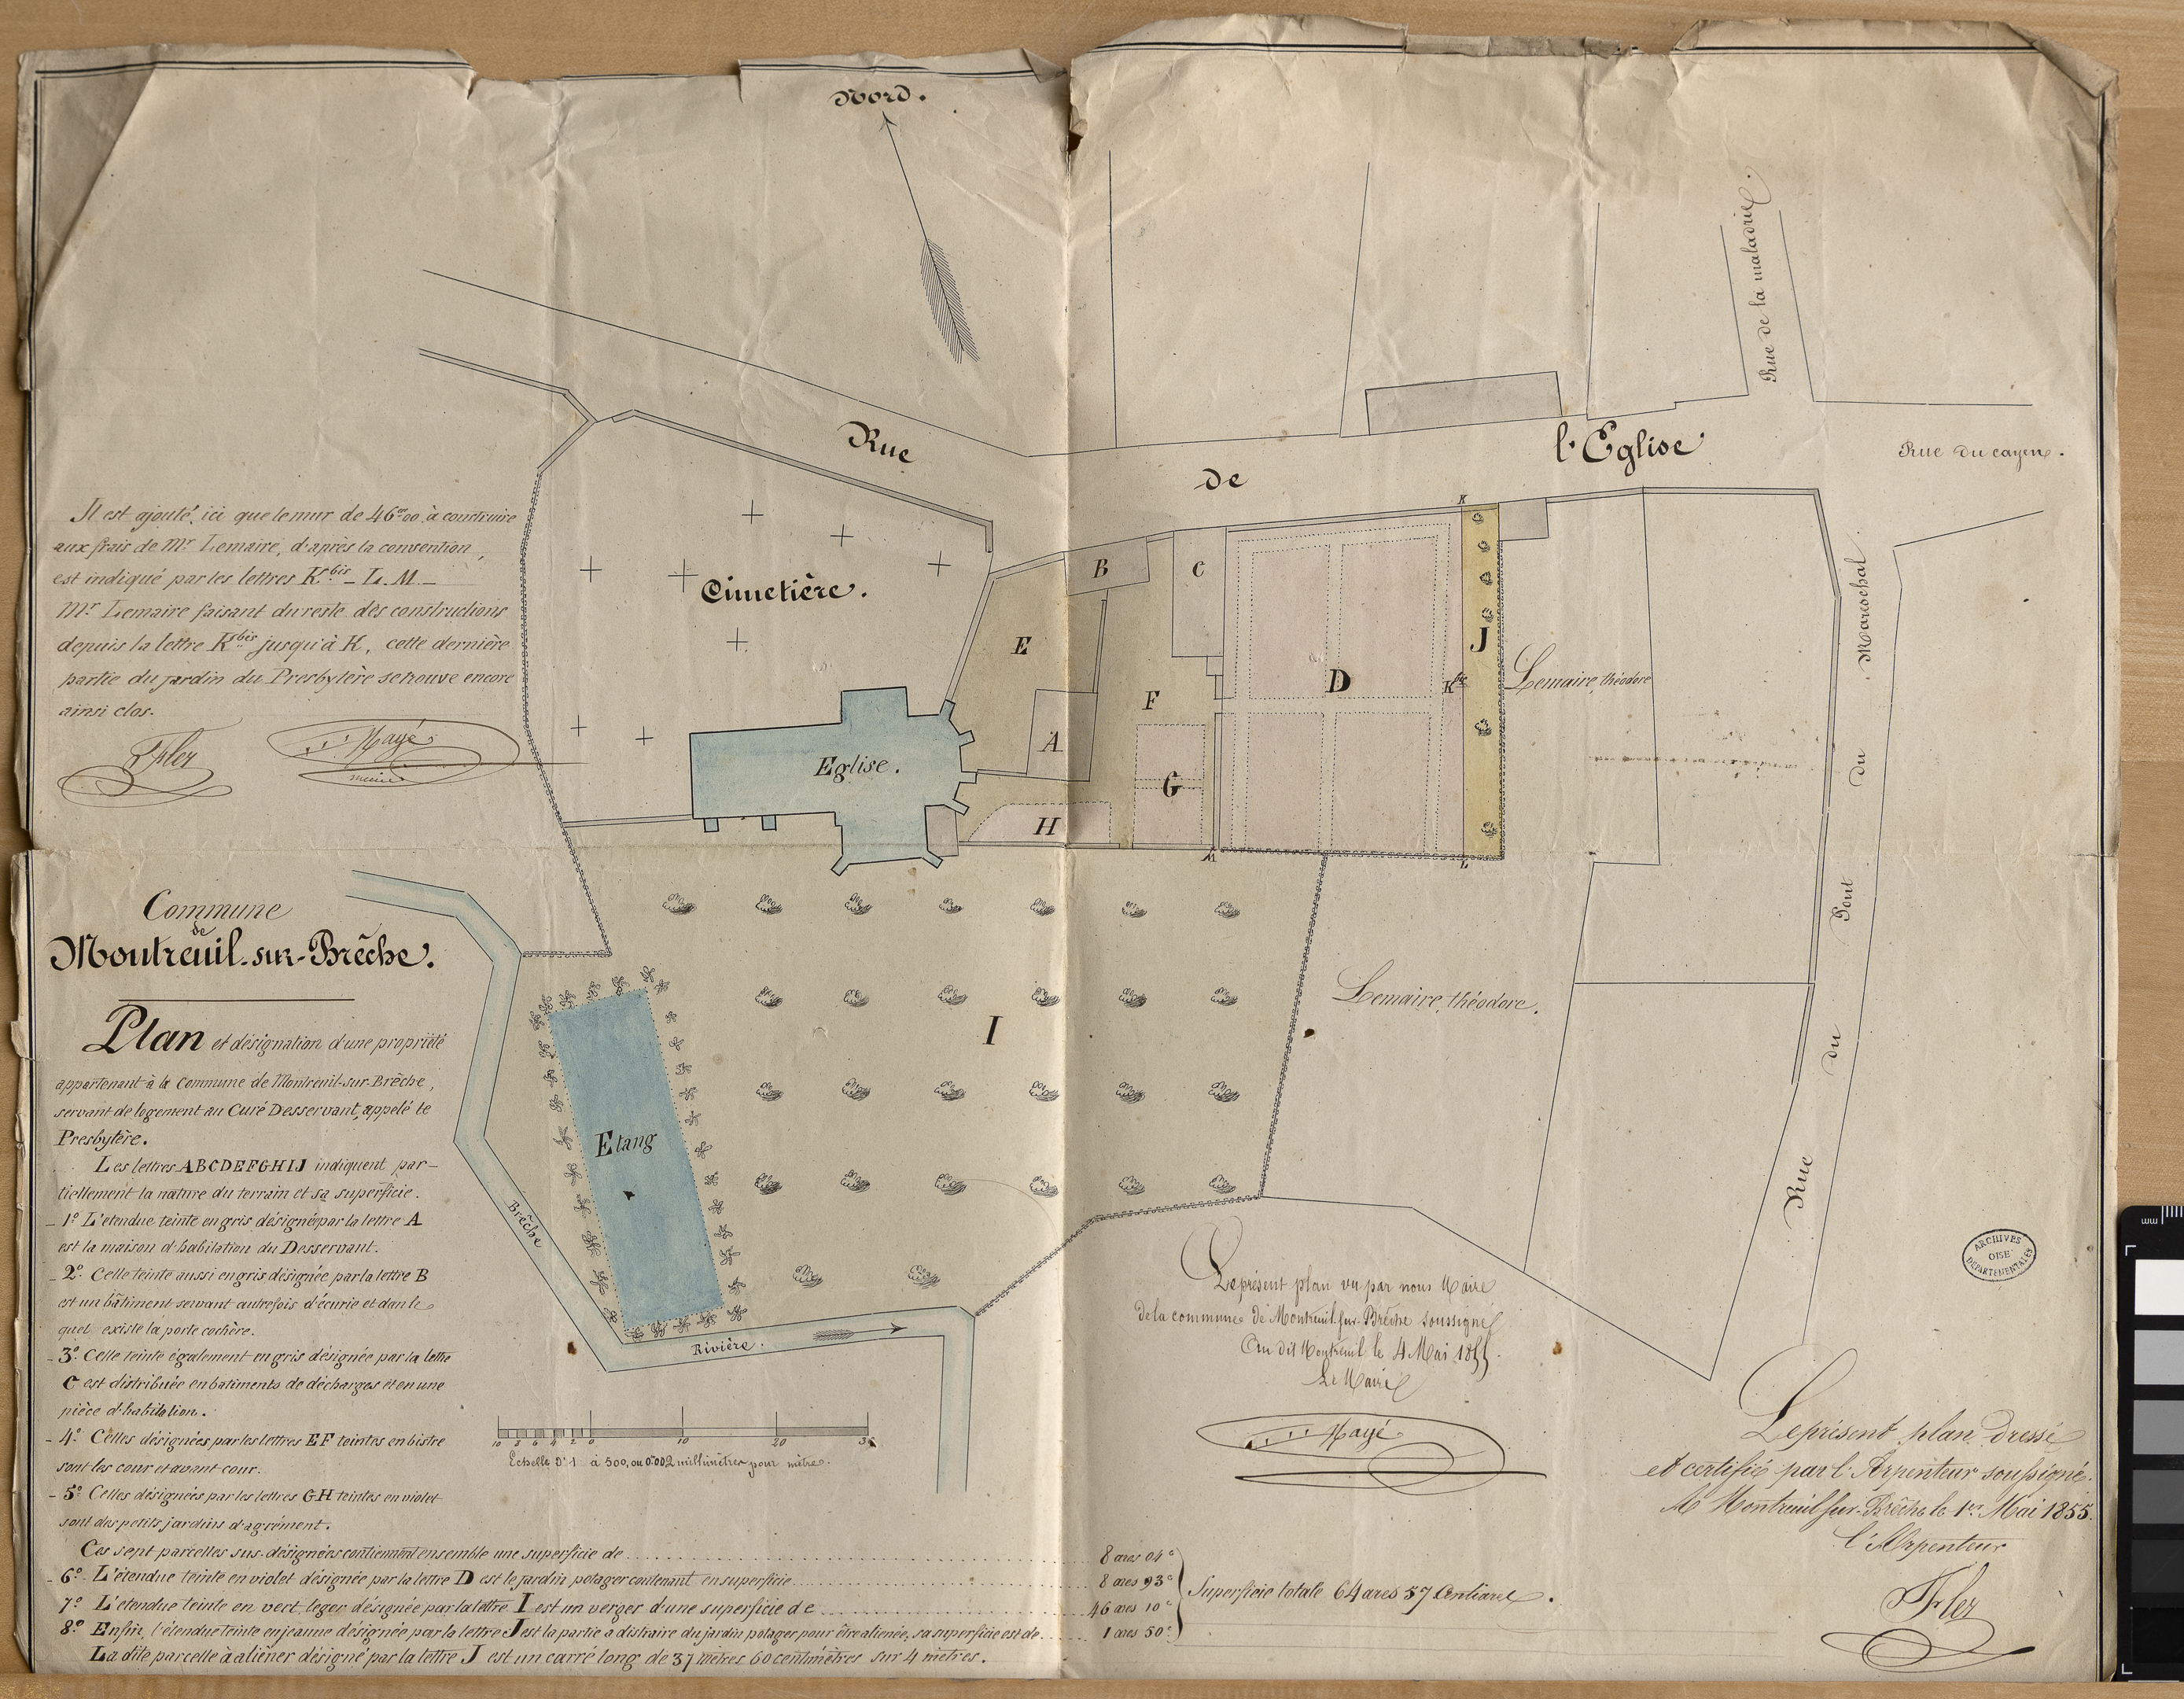 Nord.
Rue de la maladrie.
Rue
de
l'Eglise
Rue du cayen.
Il est ajouté, ici que le mur de 46m00 à construire
aux frais de Mr Lemaire, d'après la convention,
est indiqué par les lettres Kbis - L. M. -
Mr Lemaire faisant du reste des constructions
depuis la lettre Kbis jusqu'à K, cette dernière
partie du jardin du Presbytère se trouve encore
ainsi clos.
Hayé
maire
Cimetière.
K
B
C
E
J
D
Kbis
Lemaire, théodore
F
A
Eglise.
G
H
M
L
Rue du Pont du Mareschal
Commune
de
Montreuil-sur-Brêche.
Plan et désignation d'une propriété
appartenant à la Commune de Montreuil-sur-Brêche,
servant de logement au Curé Desservant, appelé le
Presbytère.
Les lettres ABCDEFGHIJ indiquent par-
tiellement la nature du terrain et sa superficie.
- 1º L'etendue teinte en gris désignée par la lettre A
est la maison d'habitation du Desservant.
- 2º Celle teinte aussi en gris désignée par la lettre B
est un bâtiment servant autrefois d'écurie et dans le
quel existe la porte cochère.
- 3º Celle teinte également en gris désignée par la lettre
C est distribuée en batiments de décharges et en une
pièce d'habitation.
- 4º Celles désignées par les lettres EF teintes en bistre
sont les cour et avant cour.
- 5º Celles désignées par les lettres GH teintes en violet
sont des petits jardins d'agrément.
Ces sept parcelles sus-désignées contiennent ensemble une superficie de 8 ares 04c
- 6º L'étendue teinte en violet désignée par la lettre D est le jardin potager contenant en superficie 8 ares 93c
7º L'etendue teinte en vert leger désignée par la lettre I est un verger d'une superficie de 46 ares 10c
8º Enfin, l'étendue teinte en jaune désignée par la lettre J est la partie à distraire du jardin potager pour être alienée, sa superficie est de 1 ares 50c
Superficie totale 64 ares 57 Centiares.
La dite parcelle à aliéner désigné par la lettre J est un carré long de 37 mètres 60 centimètres sur 4 mètres.
I
Lemaire, théodore.
Etang
Brêche
Rivière.
10 8 6 4 2 0 10 20 30
Echelle d'1 à 500, ou 0m002 millimètres pour mètre.
Le présent plan vu par nous Maire
de la commune de Montreuil-sur-Brêche soussigné
Au dit Montreuil le 4 Mai 1855.
Le Maire
Hayé
ARCHIVES
OISE
DÉPARTEMENTALES
Le présent plan dressé
et certifié par l'Arpenteur soussigné.
A Montreuil-sur-Brêche le 1er Mai 1855.
l'Arpenteur
mm